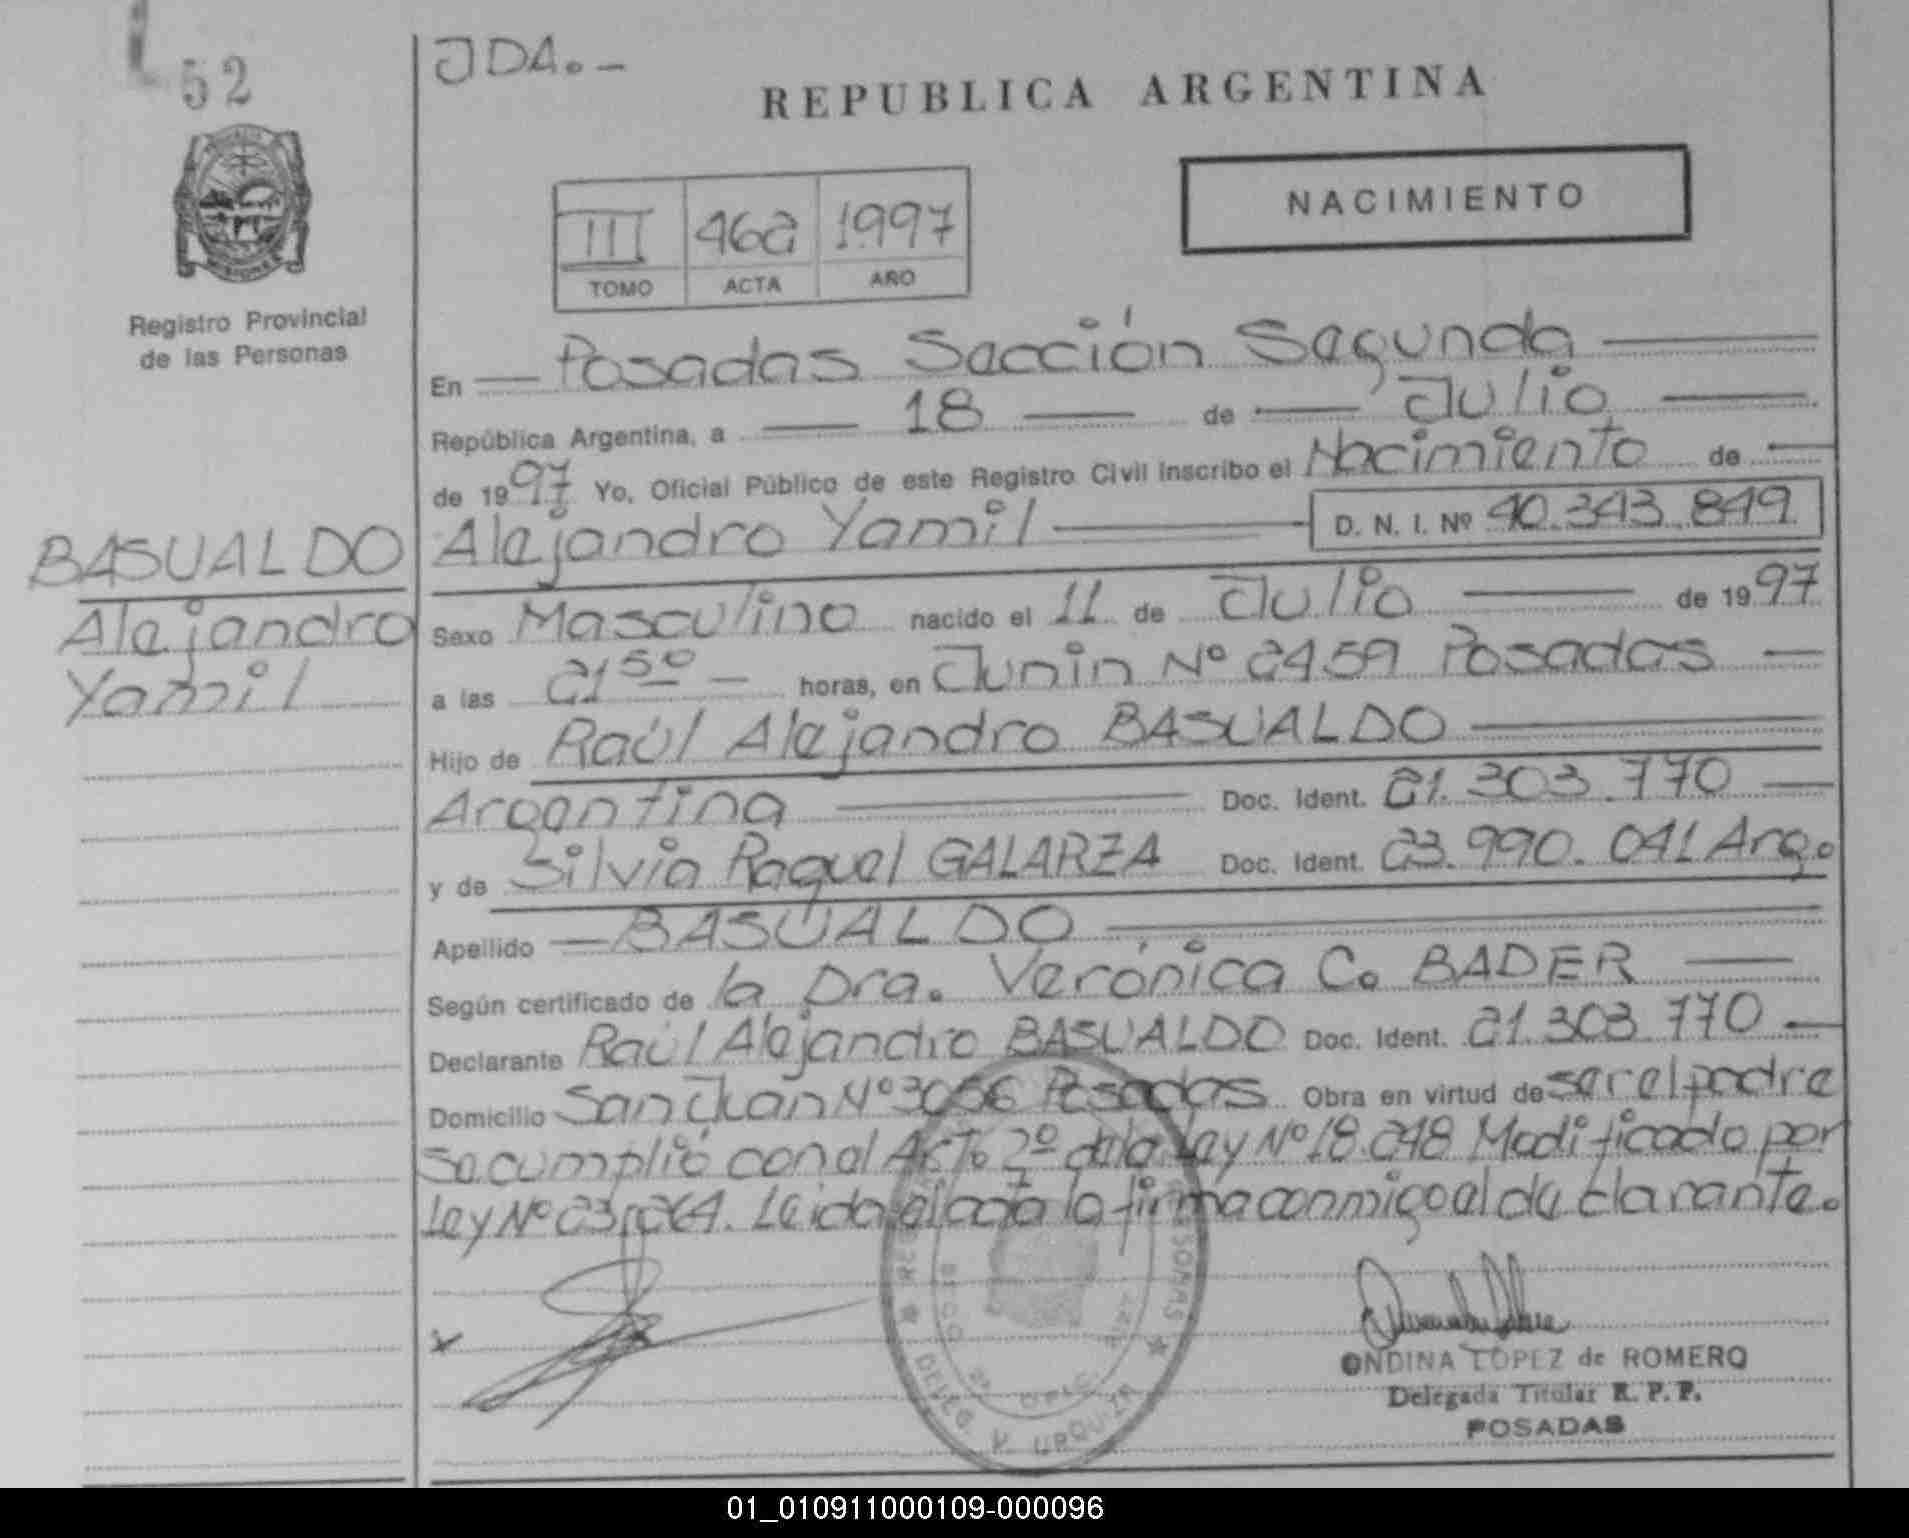 52
JDA.-
REPUBLICA ARGENTINA
NACIMIENTO
III 462 1997
TOMO ACTA AÑO
MISIONES
Registro Provincial
de las Personas
En Posadas Sección Segunda
República Argentina, a 18 de Julio
de 1997 Yo, Oficial Público de este Registro Civil inscribo el Nacimiento de
BASUALDO
Alejandro
Yamil
Alejandro Yamil D. N. I. Nº 40.343.849
Sexo Masculino nacido el 11 de Julio de 1997
a las 21 50 horas, en Junin Nº 2459 Posadas
Hijo de Raúl Alejandro BASUALDO
Argentina Doc. Ident. 21.303.770
y de Silvia Raquel GALARZA Doc. Ident. 23.990.041 Arg.
Apellido BASUALDO
Según certificado de la Dra. Verónica C. BADER
Declarante Raúl Alejandro BASUALDO Doc. Ident. 21.303.770
Domicilio San Juan Nº 3056 Posadas Obra en virtud de ser el padre
Se cumplió con el Art. 2º de la Ley Nº 18.248 Modificado por
Ley Nº 23.264. Leida el acta la firma conmigo el declarante.
DELEG. V. URQUIZA
ONDINA LOPEZ de ROMERO
Delegada Titular R. P. P.
POSADAS
01_010911000109-000096